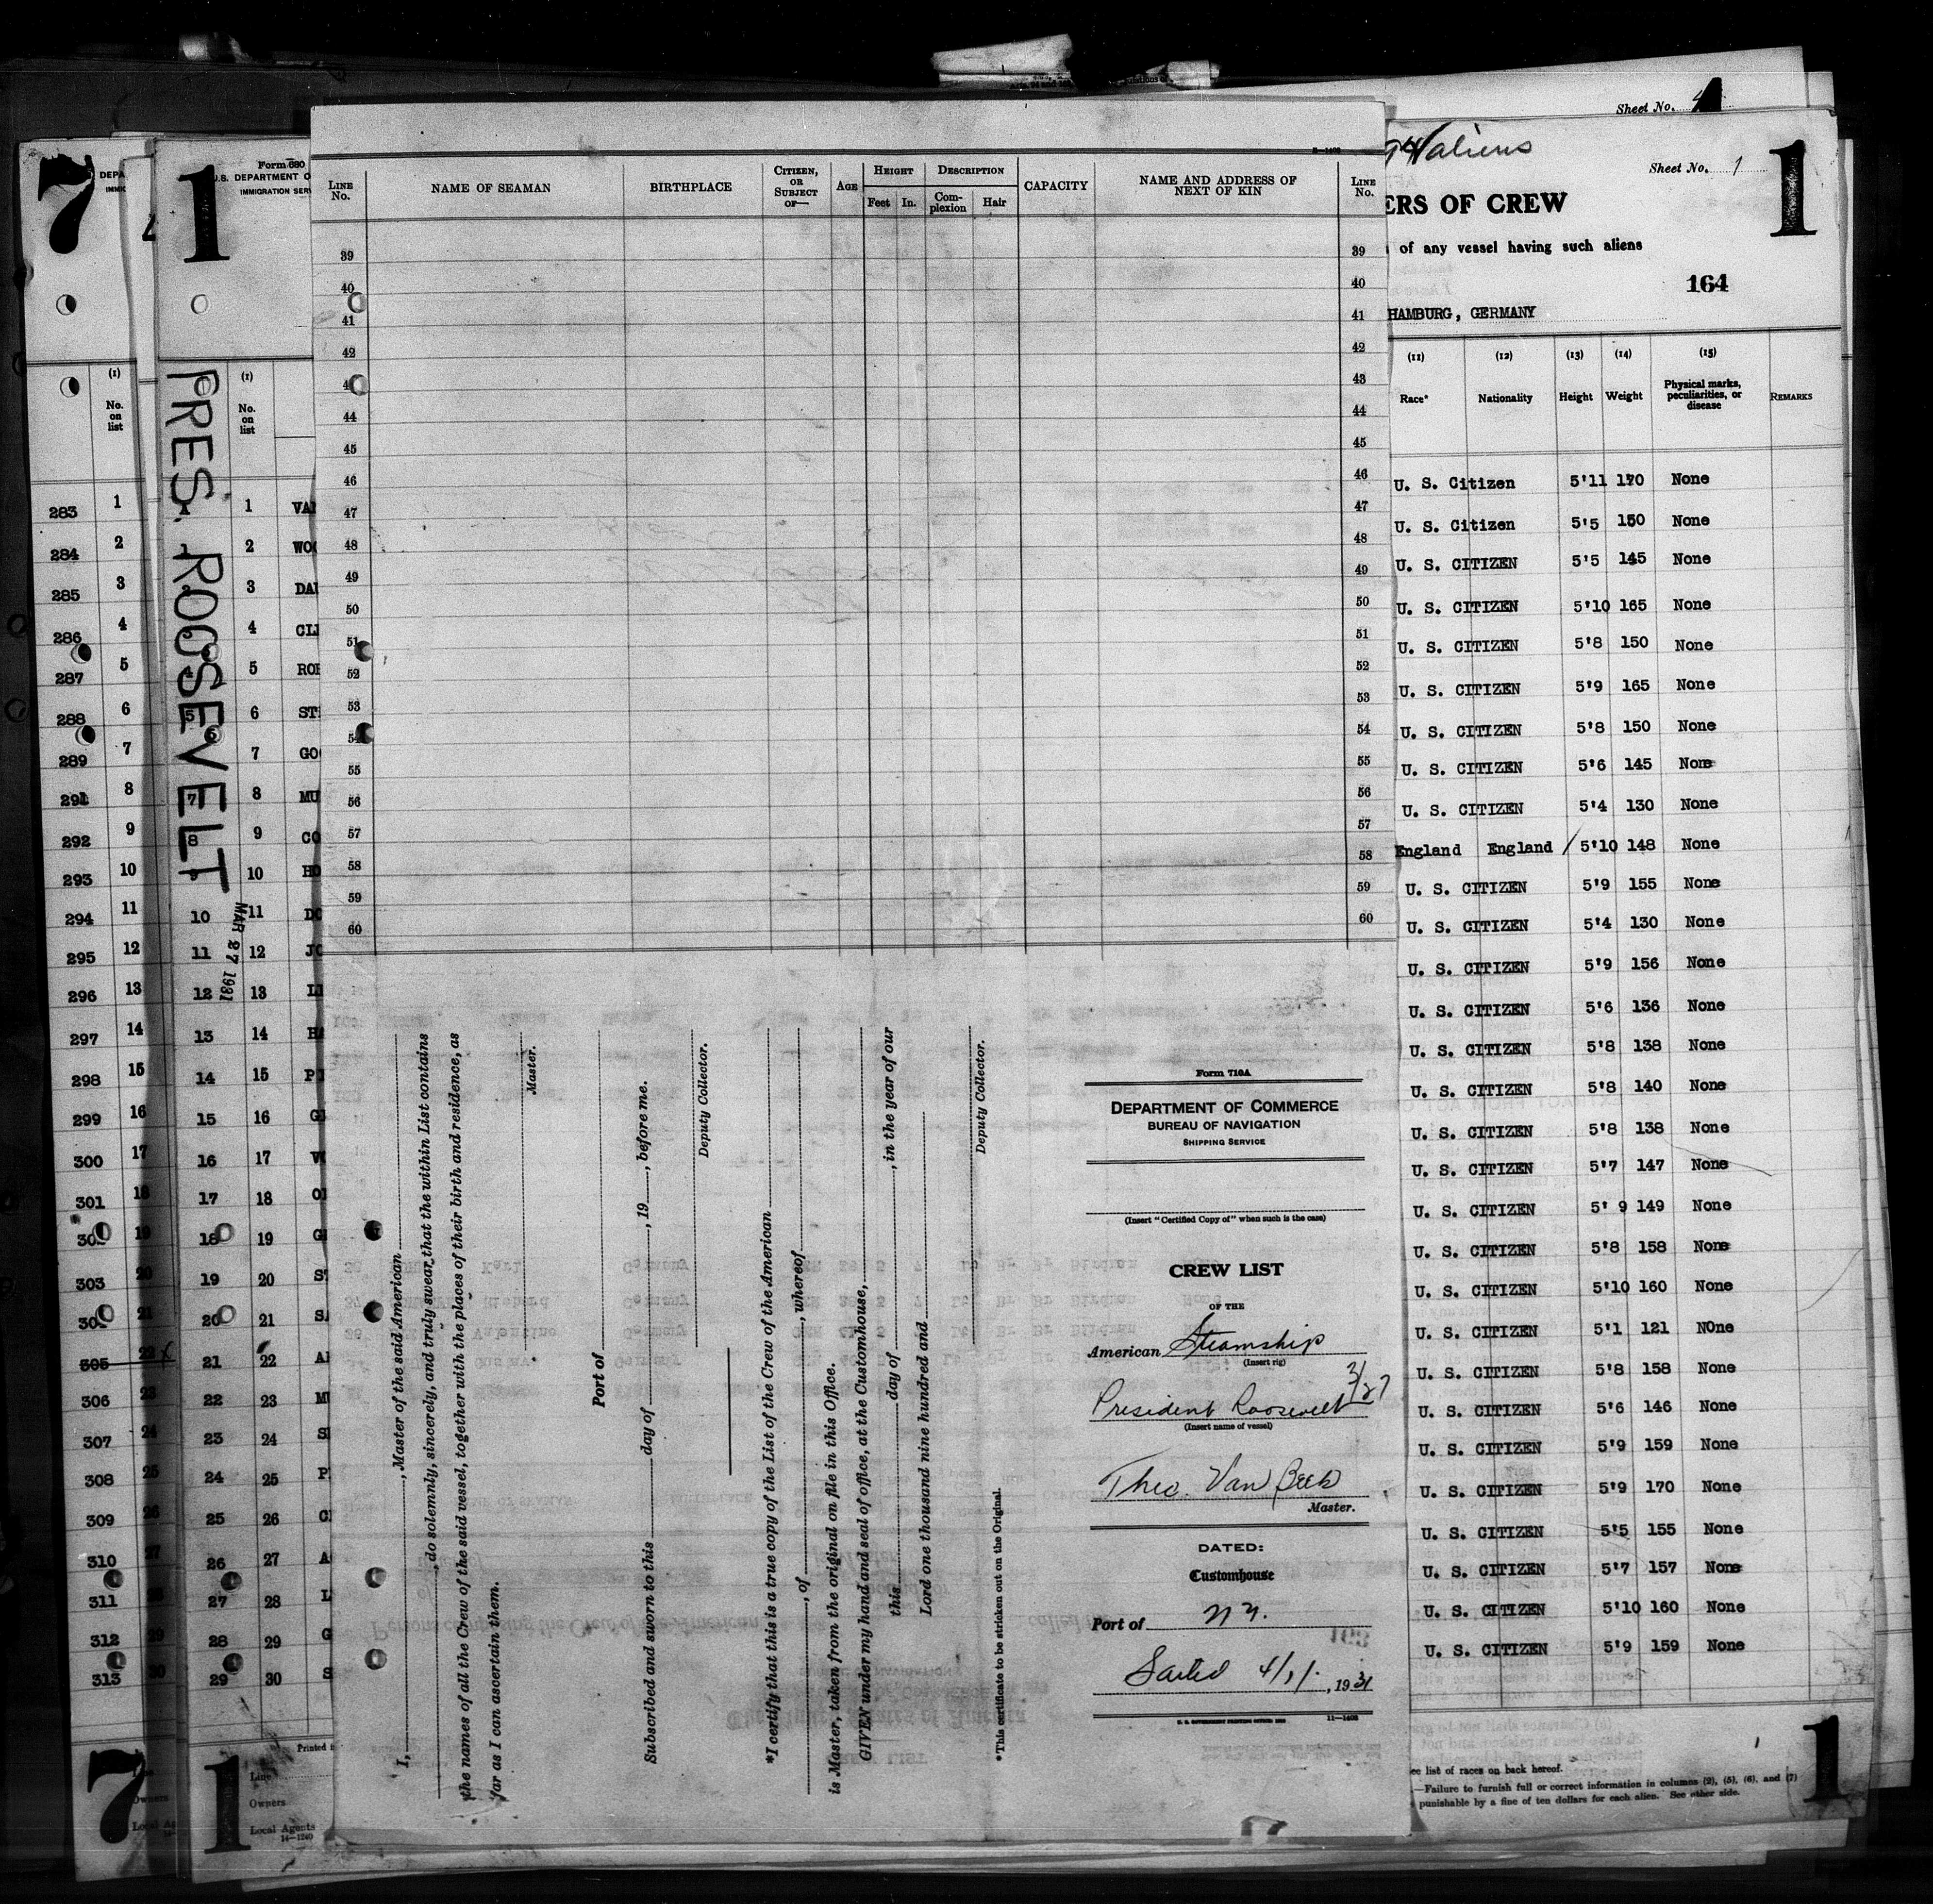 Sheet No. 4
7
DEPA
IMMI
(1)
No.
on
list
283 1
284 2
285 3
286 4
287 5
288 6
289 7
291 8
292 9
293 10
294 11
295 12
296 13
297 14
298 15
299 16
300 17
301 18
30 19
303 20
30 21
305 22
306 23
307 24
308 25
309 26
310 27
311 28
312 29
313 30
7
1
Form 680
U.S. DEPARTMENT O
IMMIGRATION SER
PRES. ROOSEVELT
MAR 27 1931
(1)
No.
on
list
1 VA
2 WOO
3 DAI
4 CLI
5 ROB
5 6 ST
6 7 GO
7 8 MU
8 9 CO
9 10 HO
10 11 DO
11 12 JO
12 13 LI
13 14 HA
14 15 P
15 16 G
16 17
17 18 O
18 19 G
19 20 S
20 21 S
21 22 A
22 23 M
23 24 S
24 25 P
25 26 C
26 27 A
27 28 L
28 29 G
29 30 S
Printed
Line
Owners
Local Agents
14—1240
1
LINE
No.
NAME OF SEAMAN
BIRTHPLACE
CITIZEN,
OR
SUBJECT
OF—
AGE
HEIGHT
Feet In.
DESCRIPTION
Com-
plexion
Hair
CAPACITY
NAME AND ADDRESS OF
NEXT OF KIN
LINE
No.
39 39
40 40
41 41
42 42
4 43
44 44
45 45
46 46
47 47
48 48
49 49
50 50
51 51
52 52
53 53
54 54
55 55
56 56
57 57
58 58
59 59
60 60
I, , Master of the said American
, do solemnly, sincerely, and truly swear that the within List contains
the names of all the Crew of the said vessel, together with the places of their birth and residence, as
far as I can ascertain them.
Master.
Port of
Subscribed and sworn to this day of , 19 , before me.
Deputy Collector.
*I certify that this is a true copy of the List of the Crew of the American
, of , whereof
is Master, taken from the original on file in this Office.
GIVEN under my hand and seal of office, at the Customhouse,
this day of , in the year of our
Lord one thousand nine hundred and
Deputy Collector.
*This certificate to be stricken out on the Original.
Form 710A
DEPARTMENT OF COMMERCE
BUREAU OF NAVIGATION
SHIPPING SERVICE
(Insert "Certified Copy of" when such is the case)
CREW LIST
OF THE
American Steamship
(Insert rig)
3/27
President Roosevelt
(Insert name of vessel)
Theo. Van Beek
Master.
DATED:
Customhouse
Port of N.Y.
Sailed 4/1/, 1931
U. S. GOVERNMENT PRINTING OFFICE
11—1408
aliens
Sheet No. 1
1
ERS OF CREW
of any vessel having such aliens
164
HAMBURG, GERMANY
(11) (12) (13) (14) (15)
Race* Nationality Height Weight Physical marks,
peculiarities, or
disease
REMARKS
U. S. Citizen 5'11 170 None
U. S. Citizen 5'5 150 None
U. S. CITIZEN 5'5 145 None
U. S. CITIZEN 5'10 165 None
U. S. CITIZEN 5'8 150 None
U. S. CITIZEN 5'9 165 None
U. S. CITIZEN 5'8 150 None
U. S. CITIZEN 5'6 145 None
U. S. CITIZEN 5'4 130 None
England England 5'10 148 None
U. S. CITIZEN 5'9 155 None
U. S. CITIZEN 5'4 130 None
U. S. CITIZEN 5'9 156 None
U. S. CITIZEN 5'6 136 None
U. S. CITIZEN 5'8 138 None
U. S. CITIZEN 5'8 140 None
U. S. CITIZEN 5'8 138 None
U. S. CITIZEN 5'7 147 None
U. S. CITIZEN 5' 9 149 None
U. S. CITIZEN 5'8 158 None
U. S. CITIZEN 5'10 160 None
U. S. CITIZEN 5'1 121 NOne
U. S. CITIZEN 5'8 158 None
U. S. CITIZEN 5'6 146 None
U. S. CITIZEN 5'9 159 None
U. S. CITIZEN 5'9 170 None
U. S. CITIZEN 5'5 155 None
U. S. CITIZEN 5'7 157 None
U. S. CITIZEN 5'10 160 None
U. S. CITIZEN 5'9 159 None
ee list of races on back hereof.
.—Failure to furnish full or correct information in columns (2), (5), (6), and (7)
punishable by a fine of ten dollars for each alien. See other side.
1